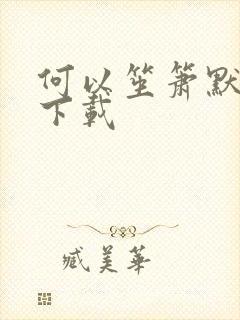 何以笙箫默
下载
臧美華